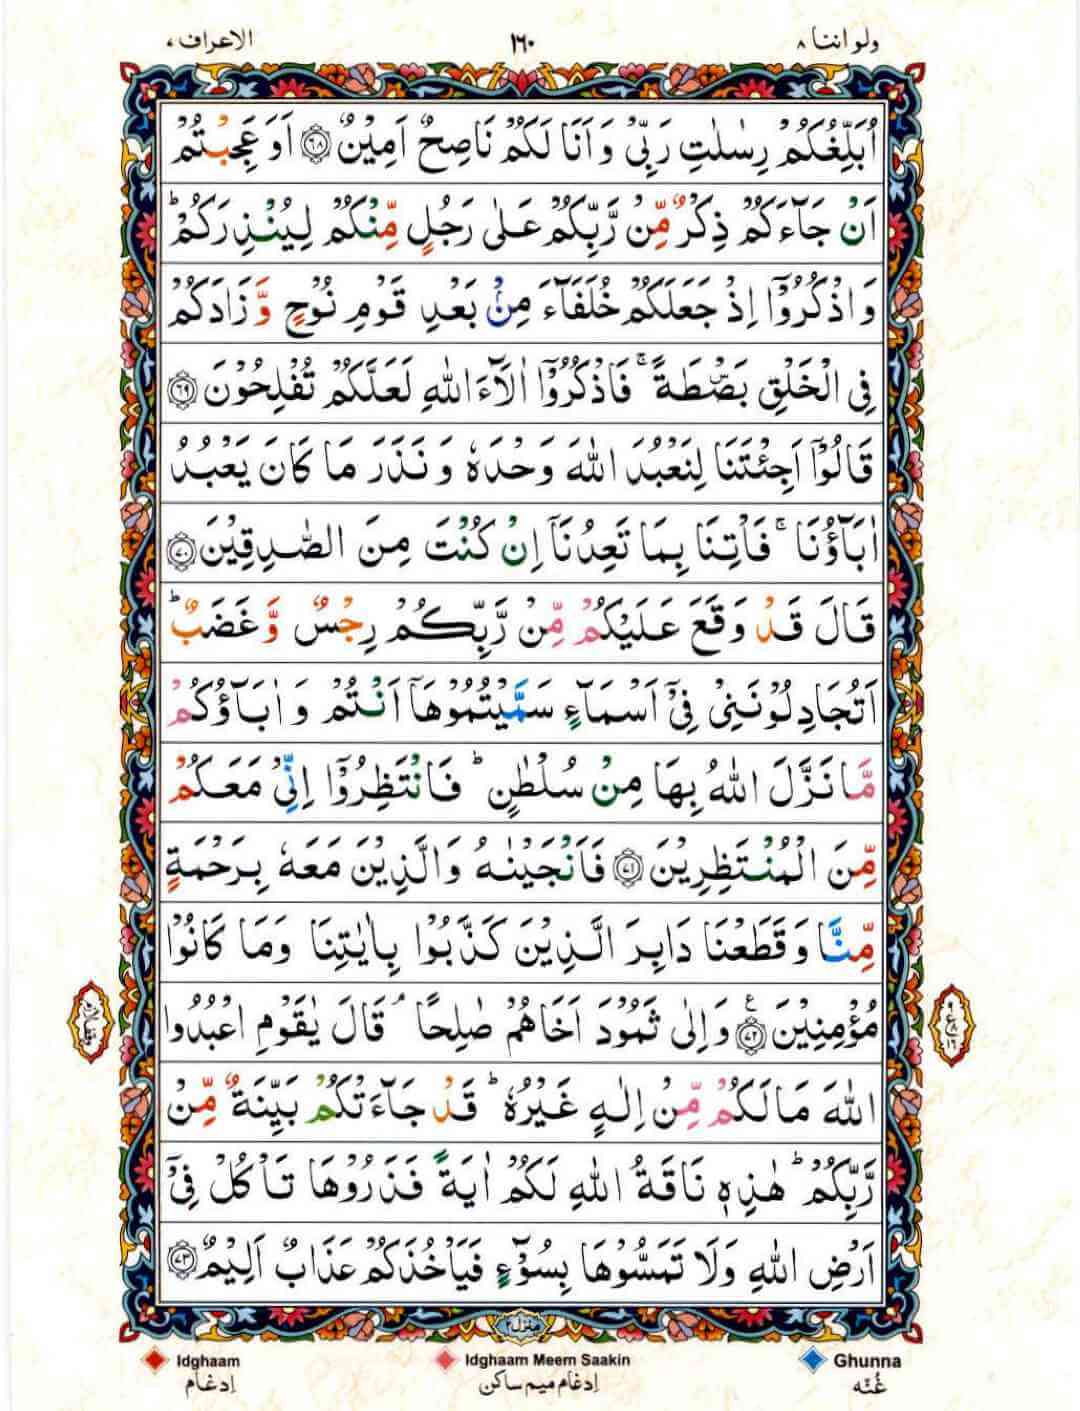 ولو اننا ٨
١٦٠
الاعراف ٧
اُبَلِّغُكُمْ رِسٰلٰتِ رَبِّیْ وَ اَنَا لَكُمْ نَاصِحٌ اَمِیْنٌ ﴿٦٨﴾ اَوَ عَجِبْتُمْ
اَنْ جَآءَكُمْ ذِكْرٌ مِّنْ رَّبِّكُمْ عَلٰی رَجُلٍ مِّنْكُمْ لِیُنْذِرَكُمْ ؕ
وَ اذْكُرُوْۤا اِذْ جَعَلَكُمْ خُلَفَآءَ مِنْۢ بَعْدِ قَوْمِ نُوْحٍ وَّ زَادَكُمْ
فِی الْخَلْقِ بَصْۜطَةً ۚ فَاذْكُرُوْۤا اٰلَآءَ اللّٰهِ لَعَلَّكُمْ تُفْلِحُوْنَ ﴿٦٩﴾
قَالُوْۤا اَجِئْتَنَا لِنَعْبُدَ اللّٰهَ وَحْدَهٗ وَ نَذَرَ مَا كَانَ یَعْبُدُ
اٰبَآؤُنَا ۚ فَاْتِنَا بِمَا تَعِدُنَاۤ اِنْ كُنْتَ مِنَ الصّٰدِقِیْنَ ﴿٧٠﴾
قَالَ قَدْ وَقَعَ عَلَیْكُمْ مِّنْ رَّبِّكُمْ رِجْسٌ وَّ غَضَبٌ ؕ
اَتُجَادِلُوْنَنِیْ فِیْۤ اَسْمَآءٍ سَمَّیْتُمُوْهَاۤ اَنْتُمْ وَ اٰبَآؤُكُمْ
مَّا نَزَّلَ اللّٰهُ بِهَا مِنْ سُلْطٰنٍ ؕ فَانْتَظِرُوْۤا اِنِّیْ مَعَكُمْ
مِّنَ الْمُنْتَظِرِیْنَ ﴿٧١﴾ فَاَنْجَیْنٰهُ وَ الَّذِیْنَ مَعَهٗ بِرَحْمَةٍ
مِّنَّا وَ قَطَعْنَا دَابِرَ الَّذِیْنَ كَذَّبُوْا بِاٰیٰتِنَا وَ مَا كَانُوْا
مُؤْمِنِیْنَ ﴿٧٢﴾ ع وَ اِلٰی ثَمُوْدَ اَخَاهُمْ صٰلِحًا ۘ قَالَ یٰقَوْمِ اعْبُدُوا
اللّٰهَ مَا لَكُمْ مِّنْ اِلٰهٍ غَیْرُهٗ ؕ قَدْ جَآءَتْكُمْ بَیِّنَةٌ مِّنْ
رَّبِّكُمْ ؕ هٰذِهٖ نَاقَةُ اللّٰهِ لَكُمْ اٰیَةً فَذَرُوْهَا تَاْكُلْ فِیْۤ
اَرْضِ اللّٰهِ وَ لَا تَمَسُّوْهَا بِسُوْٓءٍ فَیَاْخُذَكُمْ عَذَابٌ اَلِیْمٌ ﴿٧٣﴾
منزل ٢
Idghaam
Idghaam Meem Saakin
Ghunna
اِدغام
اِدغام میم ساکن
غُنّه